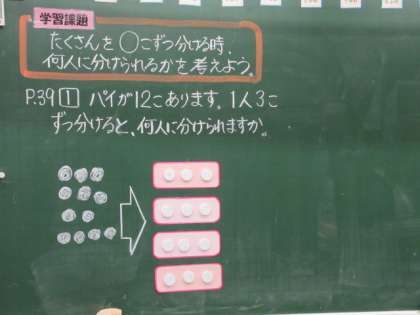 学習課題
たくさんを○こずつ分ける時、
何人に分けられるかを考えよう。
P.39 1 パイが12こあります。1人3こ
ずつ分けると、何人に分けられますか。